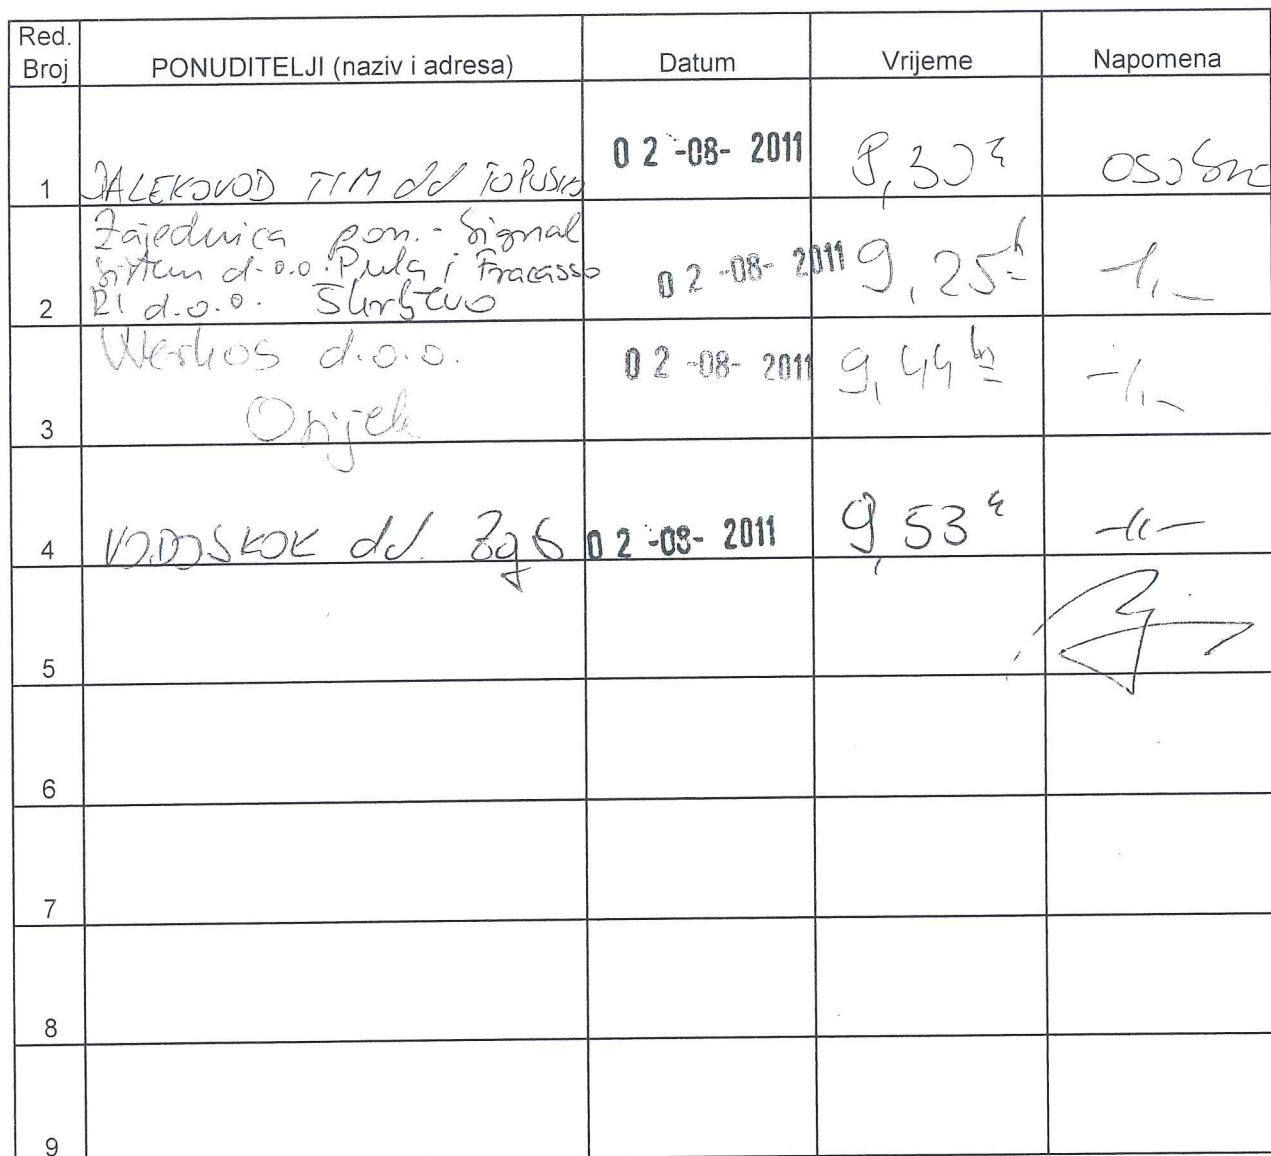 Red.
Broj PONUDITELJI (naziv i adresa) Datum Vrijeme Napomena
1 DALEKOVOD TIM dd TOPUSKO 02-08-2011 8,30 h osobno
Zajednica pon. - Signal
Sistem d.o.o. Pula i Fracasso
2 RI d.o.o. Škrljevo 02-08-2011 9,25 h -11-
Werkos d.o.o.
3 Osijek 02-08-2011 9,44 h -11-
4 VODOSKOK dd. Zgb 02-08-2011 9,53 h -11-
5
6
7
8
9